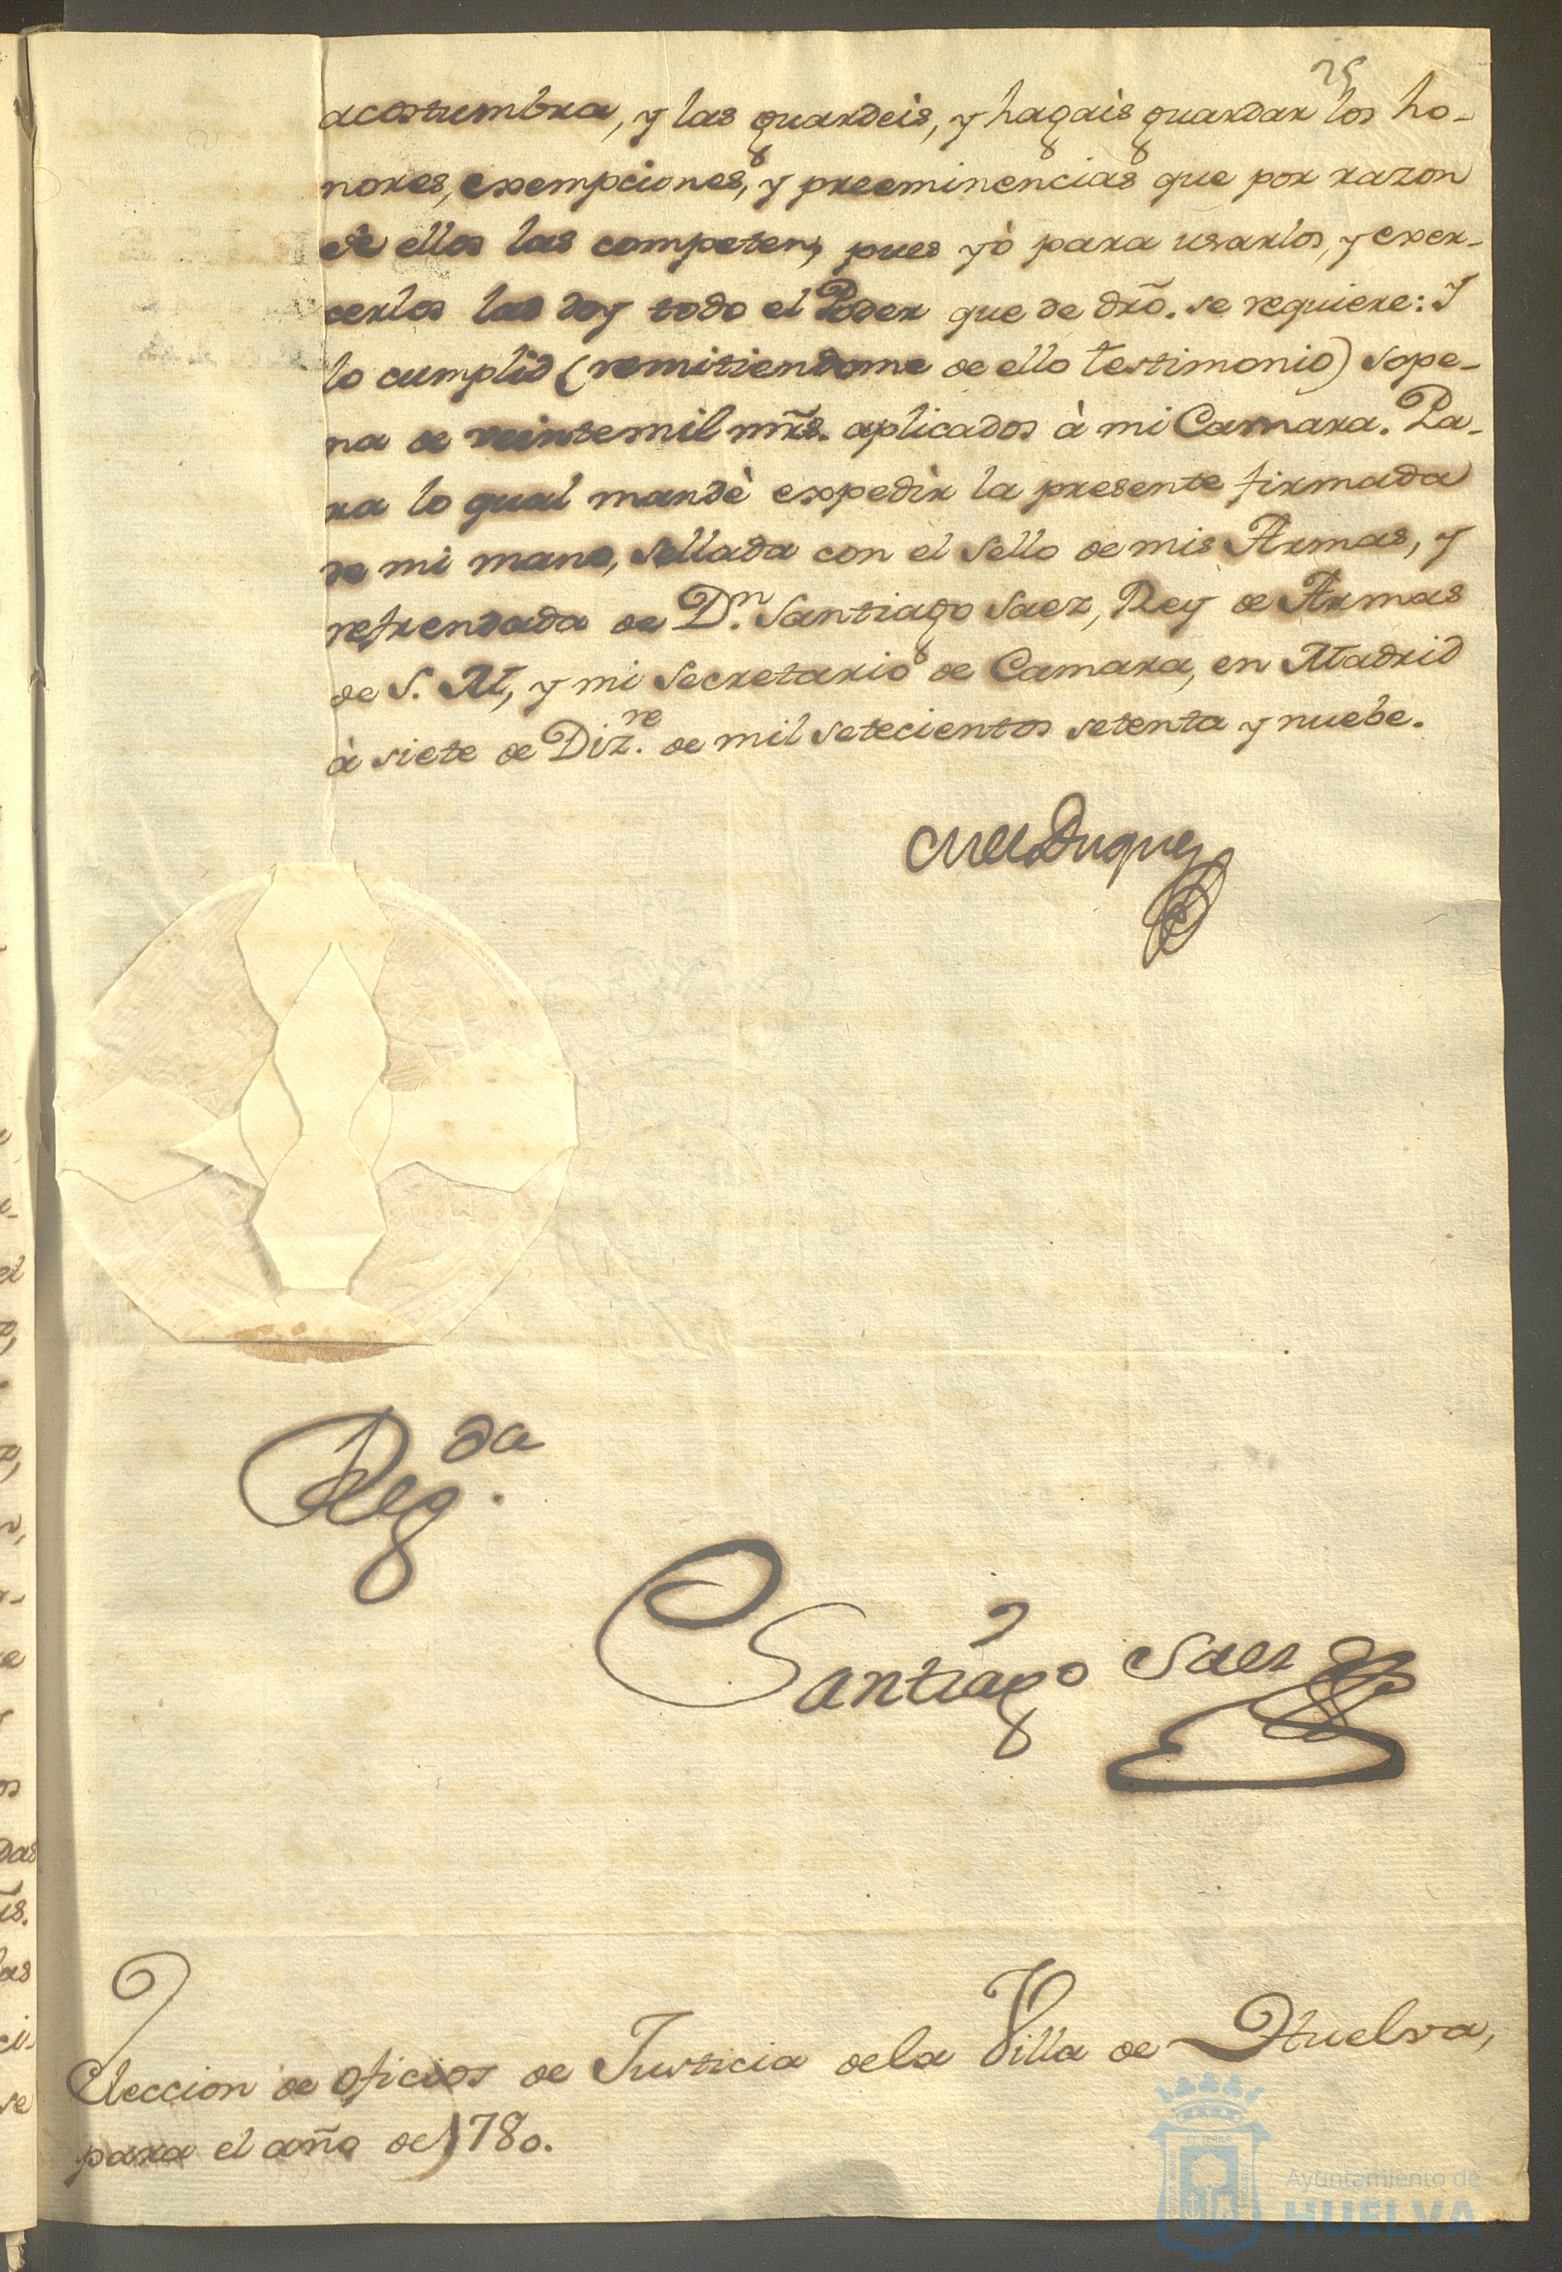 25
acostumbra, y las guardeis, y hagais guardar los ho-
nores, exempciones, y preeminencias que por razon
de ellos las competen, pues yò para usarlos, y exer-
cerlos las doy todo el Poder que de dro. se requiere: Y
lo cumplid (remitiendome de ello testimonio) sope-
na de veinte mil mrs. aplicados à mi Camara. Pa-
ra lo qual mandè expedir la presente firmada
de mi mano, sellada con el sello de mis Armas, y
refrendada de Dn. Santiago Saez, Rey de Armas
de S. M, y mi Secretario de Camara, en Madrid
à siete de Dizre. de mil setecientos setenta y nuebe.
Duque
Regda.
Santiago Saez
Eleccion de oficios de Justicia de la Villa de Huelva,
para el año de 1780.
Ayuntamiento de
HUELVA